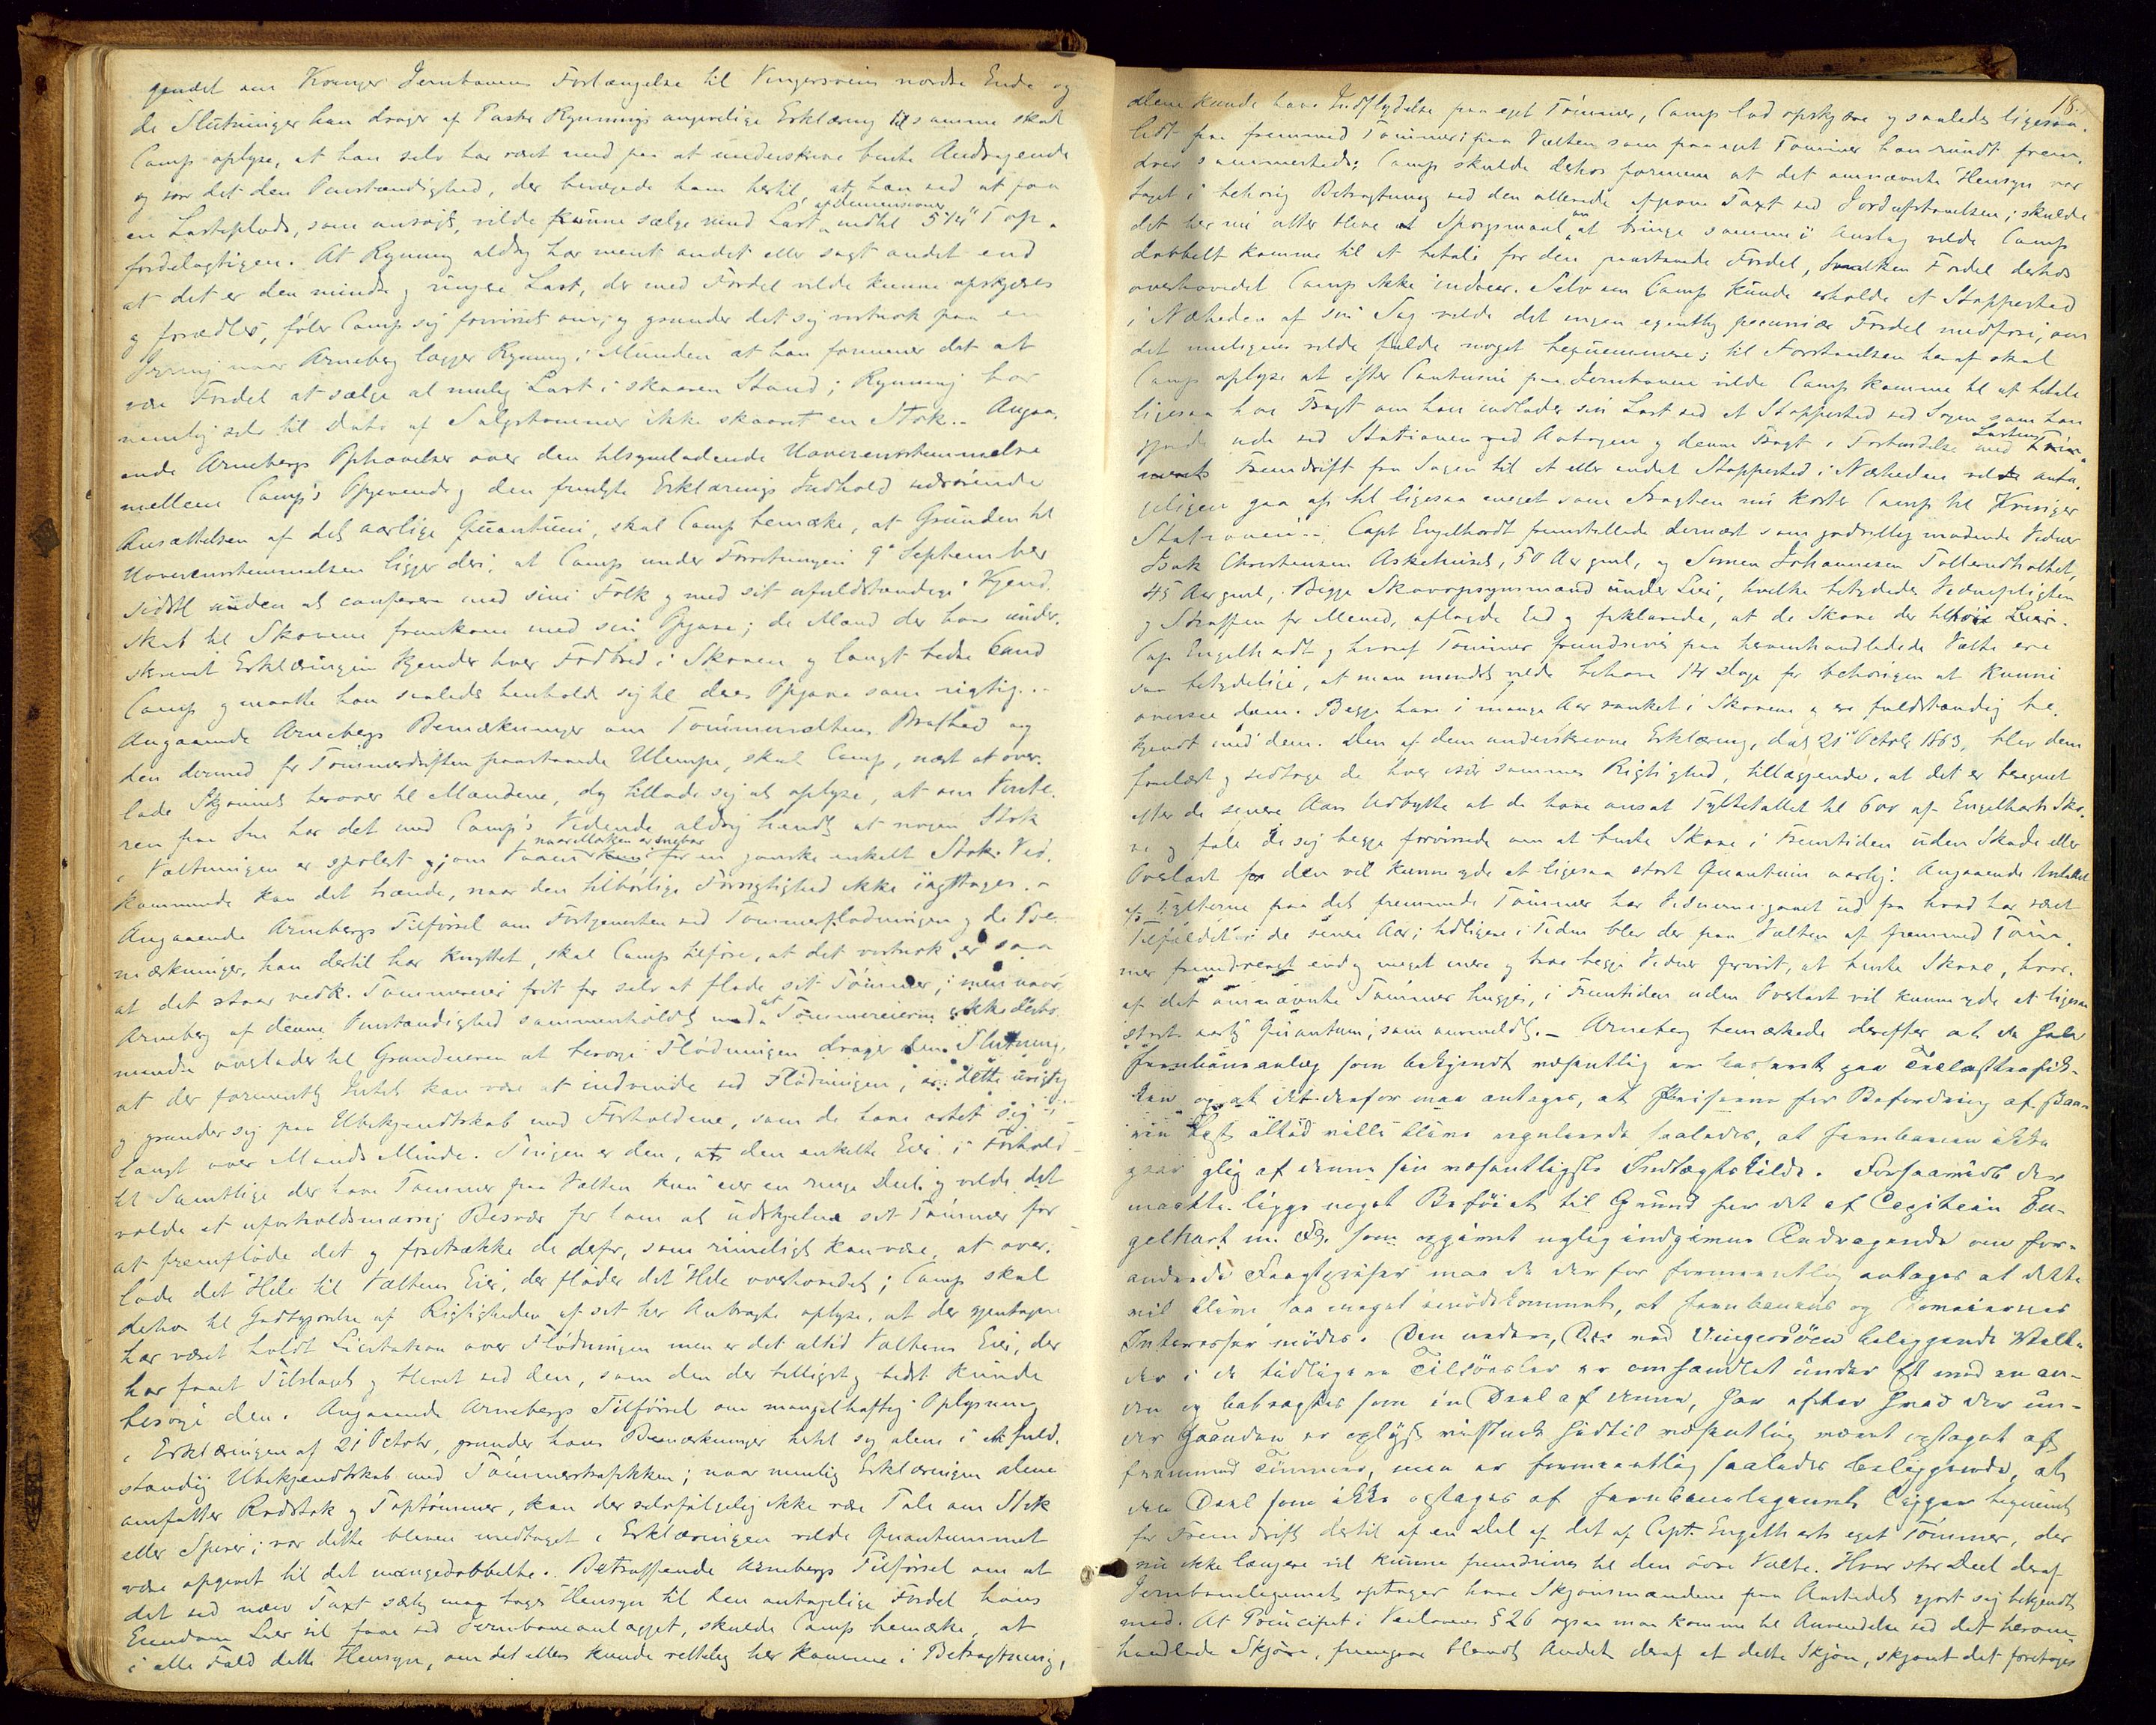 gendet om Kongsv. Jernbanens Forlængelse til Vingersøens nordre Ende og
de Slutninger han drager af Pastor Rynnings angivelige Erklæring til samme skal
Camp oplyse, at han selv har været med paa at underskrive bemte Andragende
og var det den Omstændighed, der bevægede ham hertil, at han ved at faa
en Lasteplads, som ansøgt, vilde kunne sælge smud Last af dimensioner indtil 5¼" Top
fordelagtigen. At Rynning aldrig har ment andet eller sagt andet end
at det er den mindre og ringere Last, der med Fordel vilde kunne opskjæres
og forædles, føler Camp sig forvisset om, og grunder det sig vistnok paa en
naar Arneberg lægger Rynning i Munden at han formener det at
være Fordel at sælge al mulig Last i skaaren Stand; Rynning har
nemlig selv til Dato af Salgstømmer ikke skaaret en Stok. - Angaa-
ende Arnebergs Ophævelser over den tilsyneladende Uoverensstemmelse
mellem Camp's Opgivende og den fremlagte Erklærings Indhold vedrørende
Ansættelsen af det aarlige Quantum, skal Camp bemærke, at Grunden til
Uoverensstemmelsen ligger deri, at Camp under Forretningen 9de September
sidstl. uden at conferere med sine Folk og med sit ufuldstændige Kjend-
skab til Skovene fremkom med sin Opgave; de Mænd der have under-
skrevet Erklæringen kjender hver Fodbred i Skoven og langt bedre end
Camp og maatte han saaledes henholde sig til deres Opgave som rigtig. -
Angaaende Arnebergs Bemærkninger om Tømmervæltens Brathed og
den dermed for Tømmerdriften paastaaede Ulempe, skal Camp, næst at over-
lade Skjønnet herover til Mændene, dog tillade sig at oplyse, at om Vinte-
ren paa Sne har det med Camp's Vidende aldrig hændt at nogen Stok
i Væltningen er spoleret naar Marken er snebar for en ganske enkelt Stok Ved-
kommende kan det hænde, naar den tilbørlige Forsigtighed ikke iagttages. -
Angaaende Arnebergs Tilførsel om Fortjenesten ved Tømmerflødningen og de Be-
mærkninger, han dertil har knyttet, skal Camp tilføre, at det vistnok er saa
at det staar vedk. Tømmereier frit for selv at fløde sit Tømmer; men naar
Arneberg af denne Omstændighed sammenholdt med at Tømmereierne ikke desto
mindre overlader til Grundeieren at besørge Flødningen drager den Slutning,
at der formentl. Intet kan være at indvinde ved Flødningen, er dette urigtig
og grunder sig paa Ubekjendtskab med Forholdene, som de have artet sig i
langt over Mands Minde. Tingen er den, at den enkelte Eier i Forhold
til Samtlige der have Tømmer paa Vælten kun eier en ringe Deel og vilde det
volde et uforholdsmæssig Besvær for ham at udskjelne sit Tømmer for
at fremfløde det og foretrække de derfor, som rimeligt kan være, at over-
lade det Hele til Væltens Eier, der fløder det Hele overhovedet; Camp skal
derhos til Godtgjørelse af Rigtigheden af sit her Anbragte oplyse, at der gjentagne
har været holdt Licitation over Flødningen men er det altid Væltens Eier, der
har faaet Tilslaget og blevet ved den, som den der billigst og bedst kunde
besørge den. Angaaende Arnebergs Tilførsel om mangelhaftig Oplysning
i Erklæringen af 21 Octobr, grunder hans Bemærkninger hertil sig alene i et fuld-
stændig Ubekjendtskab med Tømmertrafikken; naar nemlig Erklæringen alene
omfatter Rodstok og Toptømmer, kan der selvfølgelig ikke være Tale om Slik
eller Spirer; var dette bleven medtaget i Erklæringen vilde Quantummet
være opgivet til det mangedobbelte. Betræffende Arnebergs Tilførsel om at
det ved nærv. Taxt særlig maa tages Hensyn til den antagelige Fordel hans
Eiendom Lier vil faae ved Jernbaneanlægget, skulde Camp bemærke, at
i alle Fald dette Hensyn, om det ellers kunde rettelig her komme i Betragtning,
18.
alene kunde have Indflydelse paa eget Tømmer, Camp lod opskjære og saaledes ligesaa-
lidt paa fremmed Tømmer paa Vælten som paa eget Tømmer han rundt frem-
drev sammesteds; Camp skulde derhos formene at det omnævnte Hensyn var
taget i behørig Betragtning ved den allerede afgivne Taxt ved Jordafstaaelsen; skulde
det her nu atter blive Spørgsmaal om at bringe samme i Anslag vilde Camp
dobbelt komme til at betale for den paastaaede Fordel, hvilken Fordel derhos
overhovedet Camp ikke indseer. Selv om Camp kunde erholde et Stoppested
i Nærheden af sin Sag vilde det ingen egentlig pecuniær Fordel medføre, om
det muligens vilde falde noget beqvemmere; til Forstaaelsen heraf skal
Camp oplyse at efter Tarifen paa Jernbanen vilde Camp komme til at betale
ligesaa høi Fragt om han indlader sin Last ved et Stoppested ved Sagen som han
gjorde ude ved Stationen ved Aabogen og denne Fragt i Forbindelse med Lastens
Fremdrift fra Sagen til et eller andet Stoppested i Nærheden vilde anta-
geligen gaa op til ligesaa meget som Fragten nu koster Camp til Kongsv.
Stationen. - Capt. Engelhardt fremstillede dernæst som godvillig mødende Vidner
Isak Christensen Askehaust, 50 Aar gml, og Simen Johannesen Tollerudholtet,
45 Aar gml, Begge Skovopsynsmænd under Lier, hvilke betydedes Vidnepligten
og Straffen for Meneed, aflagde Eed og forklarede, at de Skove der tilhøre Lier.
Cap. Engelhardt og hvoraf Tømmer fremdrives paa heromhandlede Vælte ere
saa betydelige, at man mindst vilde behøve 14 Dage for behørigen at kunne
oversee dem. Begge have i mange Aar vanket i Skovene og ere fuldstændig be-
kjendt med dem. Den af dem underskrevne Erklæring, dat. 21de Octobr 1863, blev dem
forelæst og vedtoge de hver især sammes Rigtighed, tillæggende, at det er beregnet
efter de senere Aars Udbytte at de have ansat Tyltetallet til 600 af Engelharts Sko-
ve og føle de sig begge forvissede om at bemte Skove i Fremtiden uden Skade eller
Overlast for den vil kunne yde et ligesaa stort Quantum aarlig. Angaaende Antallet
af Tylterne paa det fremmede Tømmer har Vidnerne gaaet ud fra hvad har været
Tilfældet i de senere Aar; tidligere i Tiden blev der paa Vælten af fremmed Tøm-
mer fremdrevet endog meget mere og troe begge Vidner forvist, at bemte Skove, hvor-
af det omnævnte Tømmer hugges, i Fremtiden uden Overlast vil kunne yde et ligesaa
stort aarlig Quantum, som anmeldt. - Arneberg bemærkede derefter at da hele
Jernbaneanlæg som bekjendt væsentlig er baseret paa Trælasttrafik-
ken og at det derfor maa antages, at Priserne for Befordring af Saa-
dan Last altid ville blive regulerede saaledes, at Jernbanen ikke
gaar glip af denne sin væsentligste Indtægtskilde. Forsaavidt der
maatte ligge noget Beføiet til Grund for det af Capitain En-
gelhart m. fl. som opgivet nylig indgivne Andragende om for-
andrede Fragtpriser maa det derfor formeentlig antages at dette
vil blive saa meget imødekommet, at Jernbanens og Almeenhedens
Interesser mødes. Den nedre, Der ved Vingersøen beliggende Vælte
der i de tidligere Tilførsler er omhandlet under Et med en an-
den og betragtes som en Deel af denne, har efter hvad der un-
der Gaarden er oplyst vistnok hidtil væsentlig været optaget af
fremmed Tømmer, men er formeentlig saaledes beliggende, at
den Deel som ikke optages af Jernbanelegemet ligger beqvemt
for Fremdrift dertil af en Del af det af Capt. Engelharts eget Tømmer, der
nu ikke længere vil kunne fremdrives til den øvre Vælte. Hvor stor Deel deraf
Jernbanelegemet optager have Skjønsmændene paa Aastedet gjort sig bekjendt
med. At Princippet i Veilovens § 26 ogsaa maa komme til Anvendelse ved det herom-
handlede Skjøn, fremgaar blandt Andet deraf at dette Skjøn, skjønt det foretages